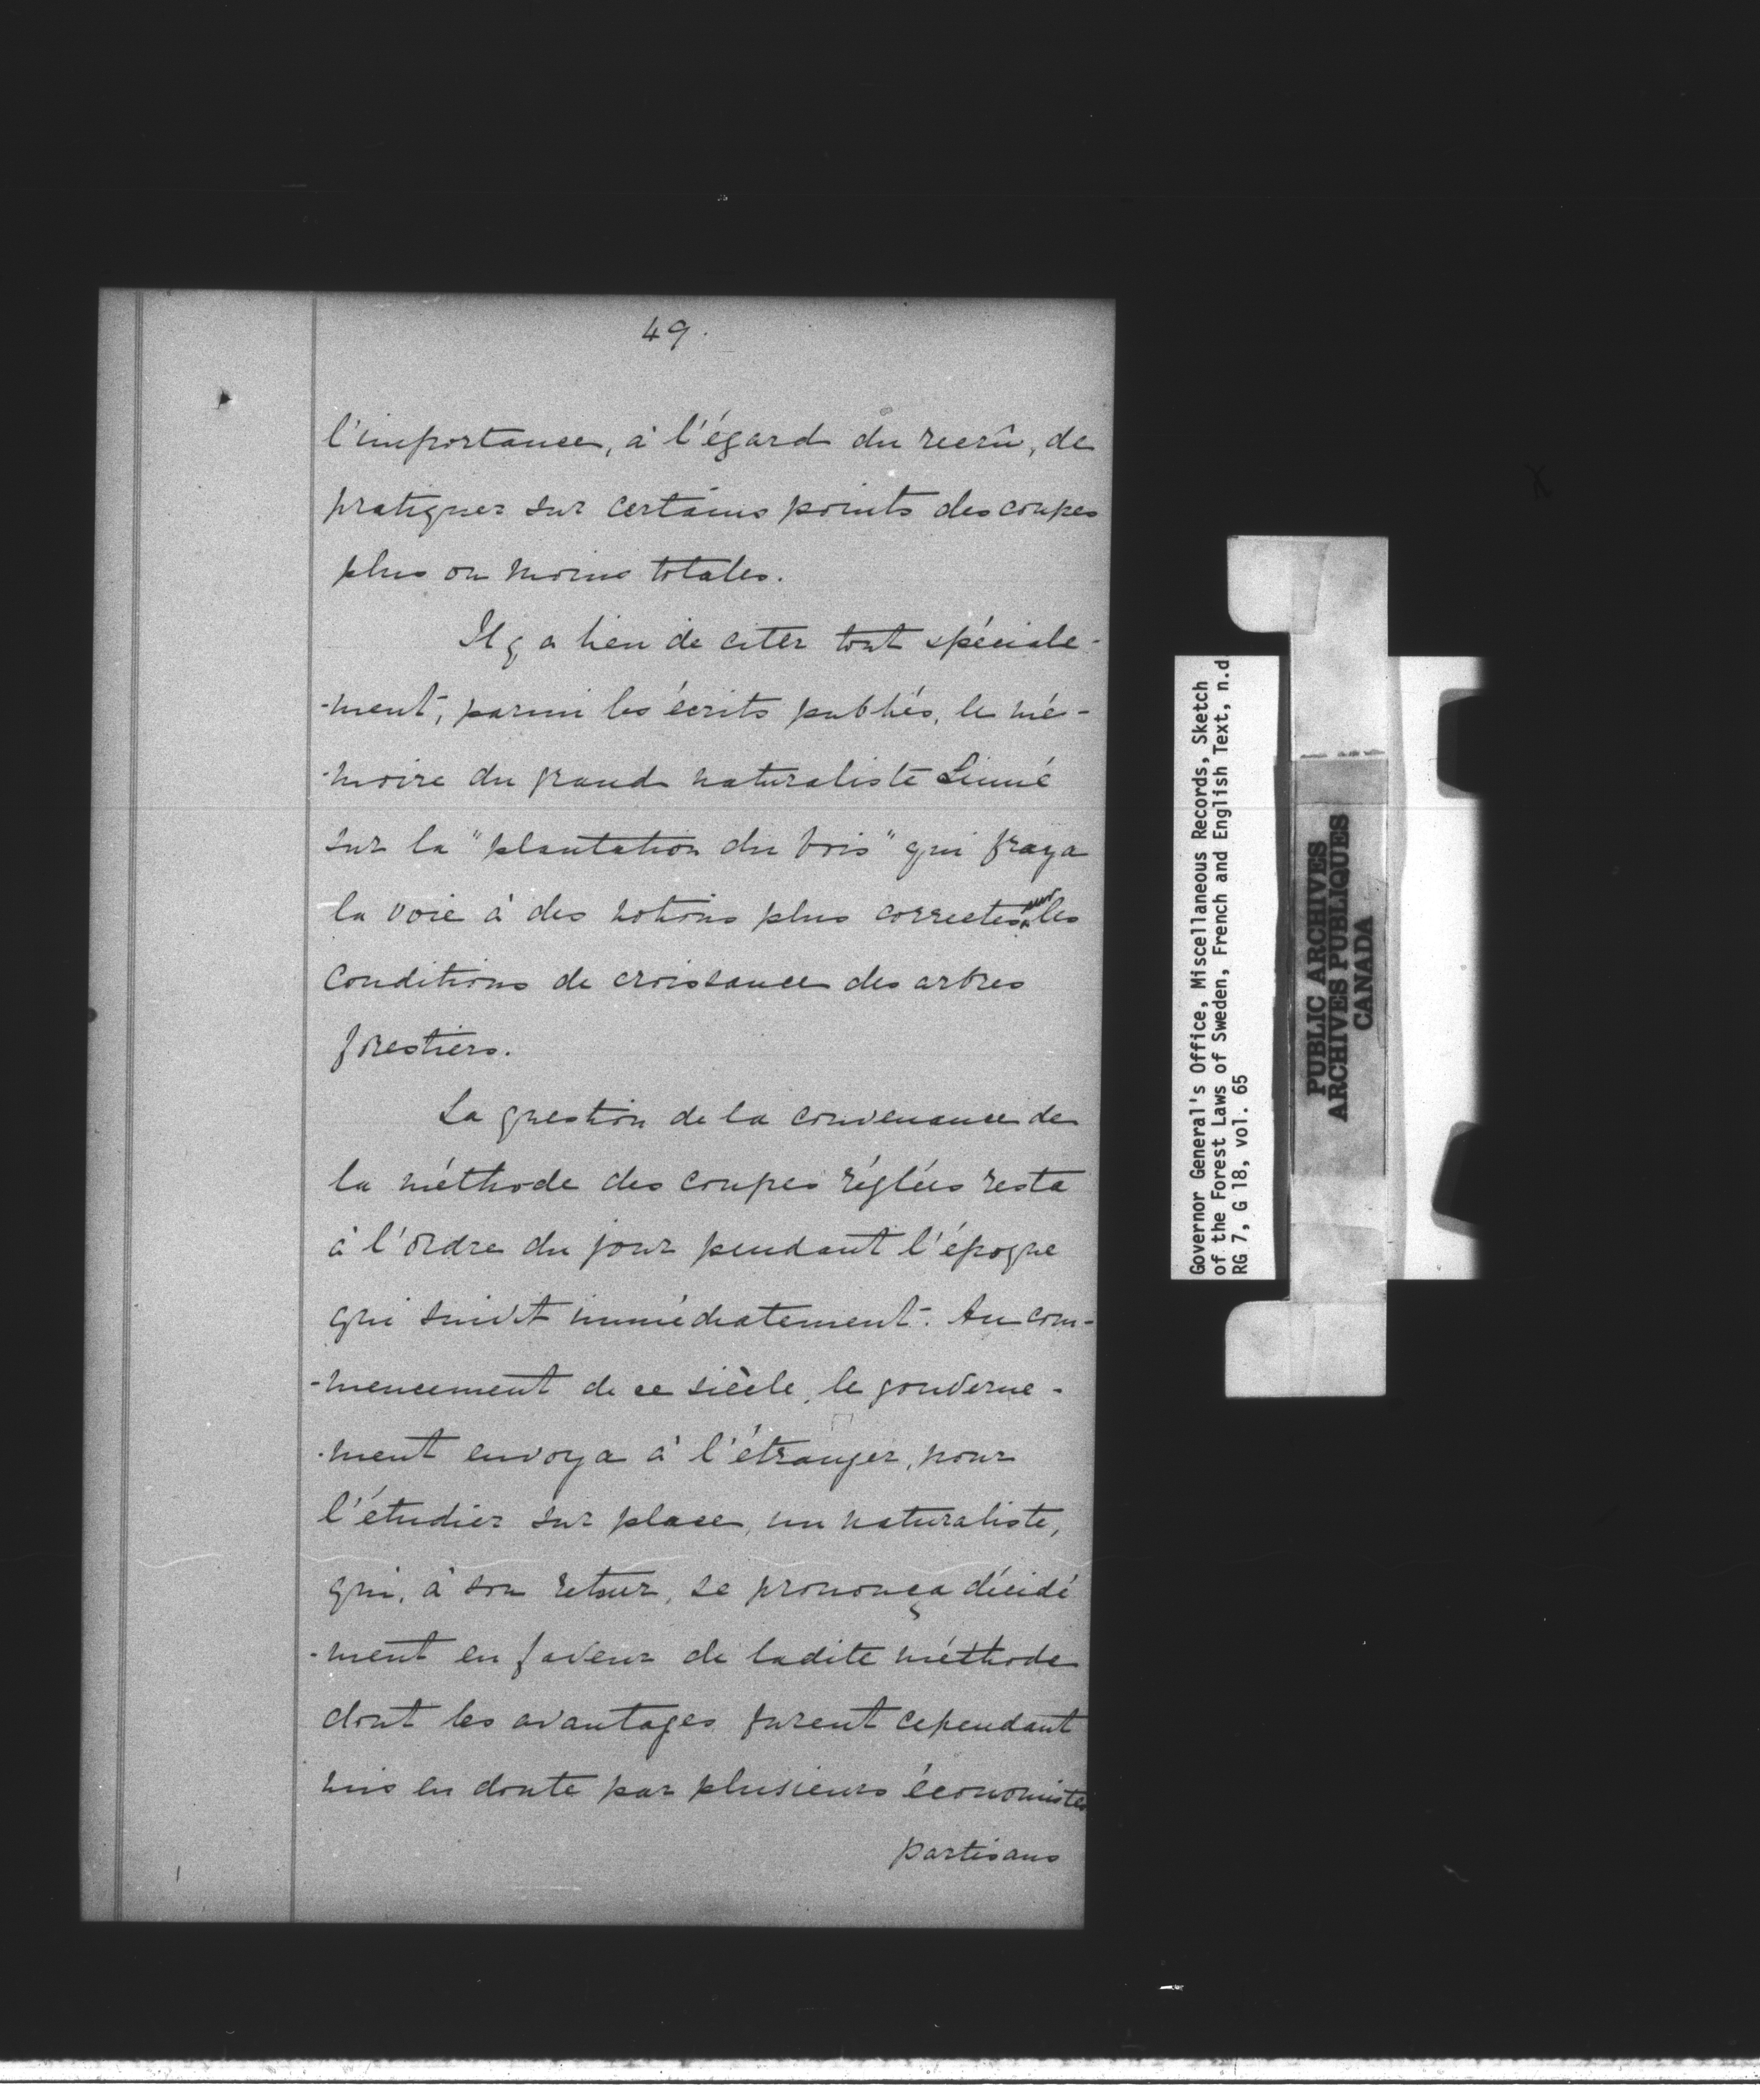 49.
l'importance, à l'égard du recrû, de
pratiquer sur certains points des coupes
plus ou moins totales.
Il y a lieu de citer tout spéciale-
-ment, parmi les écrits publiés, le mé-
-moire du grand naturaliste Linné
sur la "plantation du bois" qui fraya
la voie à des notions plus correctes sur les
conditions de croissance des arbres
forestiers.
La question de la convenance de
la méthode des coupes réglées resta
à l'ordre du jour pendant l'époque
qui suivit immédiatement. Au com-
-mencement de ce siècle, le gouverne-
-ment envoya à l'étranger, pour
l'étudier sur place, un naturaliste,
qui, à son retour, se prononça décidé
-ment en faveur de ladite méthode
dont les avantages furent cependant
mis en doute par plusieurs économistes
partisans
Governor General's Office, Miscellaneous Records, Sketch
of the Forest Laws of Sweden, French and English Text, n.d
RG 7, G 18, vol. 65
PUBLIC ARCHIVES
ARCHIVES PUBLIQUES
CANADA